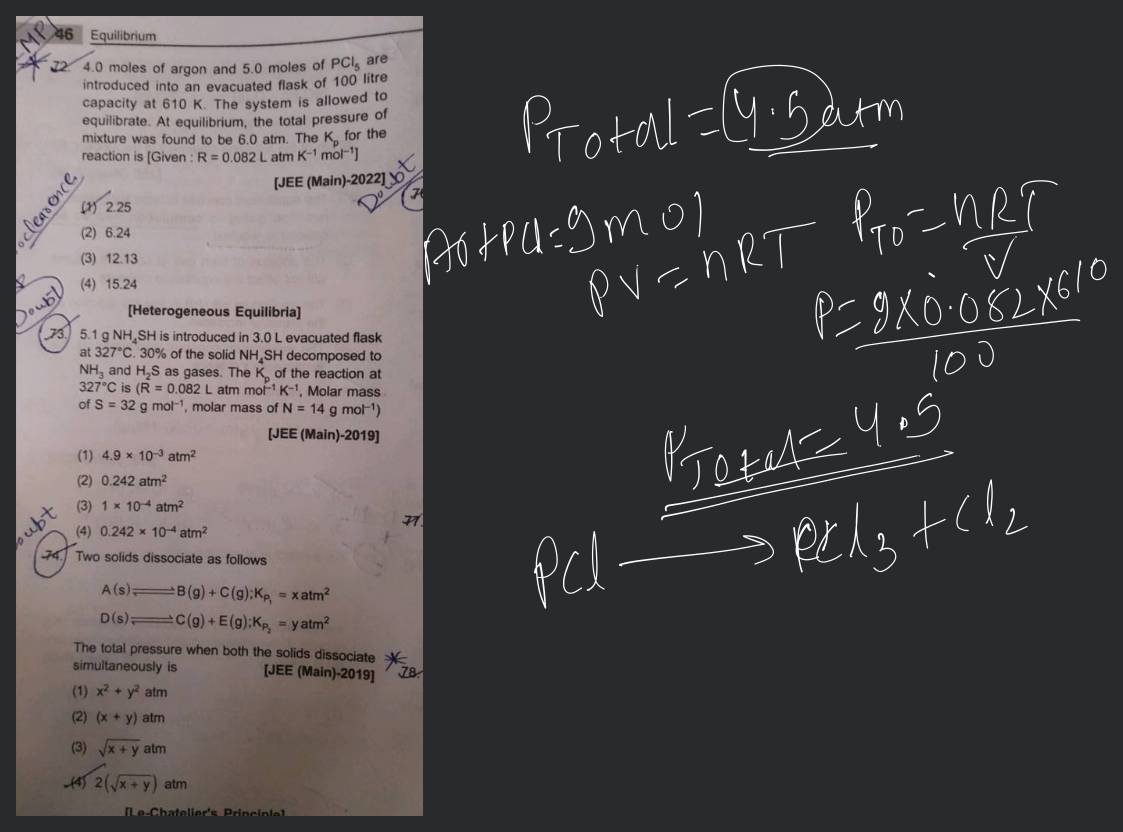 46 Equilibrium
IMP
72. 4.0 moles of argon and 5.0 moles of PCl₅ are
introduced into an evacuated flask of 100 litre
capacity at 610 K. The system is allowed to
equilibrate. At equilibrium, the total pressure of
mixture was found to be 6.0 atm. The Kₚ for the
reaction is [Given : R = 0.082 L atm K⁻¹ mol⁻¹]
[JEE (Main)-2022]
Doubt
(1) 2.25
(2) 6.24
(3) 12.13
(4) 15.24
[Heterogeneous Equilibria]
Doubt
73. 5.1 g NH₄SH is introduced in 3.0 L evacuated flask
at 327°C. 30% of the solid NH₄SH decomposed to
NH₃ and H₂S as gases. The Kₚ of the reaction at
327°C is (R = 0.082 L atm mol⁻¹ K⁻¹, Molar mass
of S = 32 g mol⁻¹, molar mass of N = 14 g mol⁻¹)
[JEE (Main)-2019]
(1) 4.9 × 10⁻³ atm²
(2) 0.242 atm²
(3) 1 × 10⁻⁴ atm²
(4) 0.242 × 10⁻⁴ atm²
77.
oubt
74. Two solids dissociate as follows
A(s) ⇌ B(g) + C(g); K_P₁ = x atm²
D(s) ⇌ C(g) + E(g); K_P₂ = y atm²
The total pressure when both the solids dissociate
simultaneously is [JEE (Main)-2019]
78.
(1) x² + y² atm
(2) (x + y) atm
(3) √(x + y) atm
(4) 2(√(x + y)) atm
[Le-Chatelier's Principle]
PTotal = 4.5 atm
= 9 mol
PV = nRT
PTo = nRT/V
P = 9×0.082×610
100
PTotal = 4.5
PCl → PCl3 + Cl2